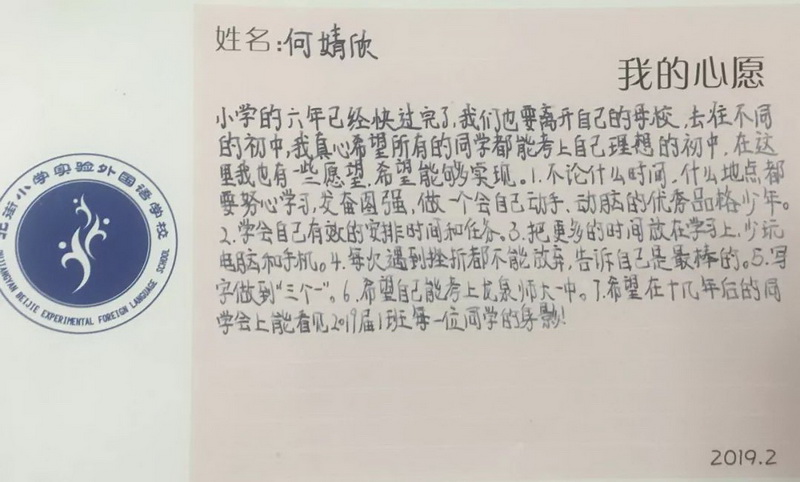 姓名:何婧欣
我的心愿
小学的六年已经快过完了,我们也要离开自己的母校,去往不同
的初中,我真心希望所有的同学都能考上自己理想的初中,在这
里我也有一些愿望,希望能够实现。1.不论什么时间,什么地点,都
要努心学习,发奋图强,做一个会自己动手、动脑的优秀品格少年。
2.学会自己有效的安排时间和任务。3.把更多的时间放在学习上,少玩
电脑和手机。4.每次遇到挫折都不能放弃,告诉自己是最棒的。5.写
字做到“三个一”。6.希望自己能考上龙泉师大一中。7.希望在十几年后的同
学会上能看见2019届1班每一位同学的身影!
2019.2
北街小学实验外国语学校
DUJIANGYAN BEIJIE EXPERIMENTAL FOREIGN LANGUAGE SCHOOL